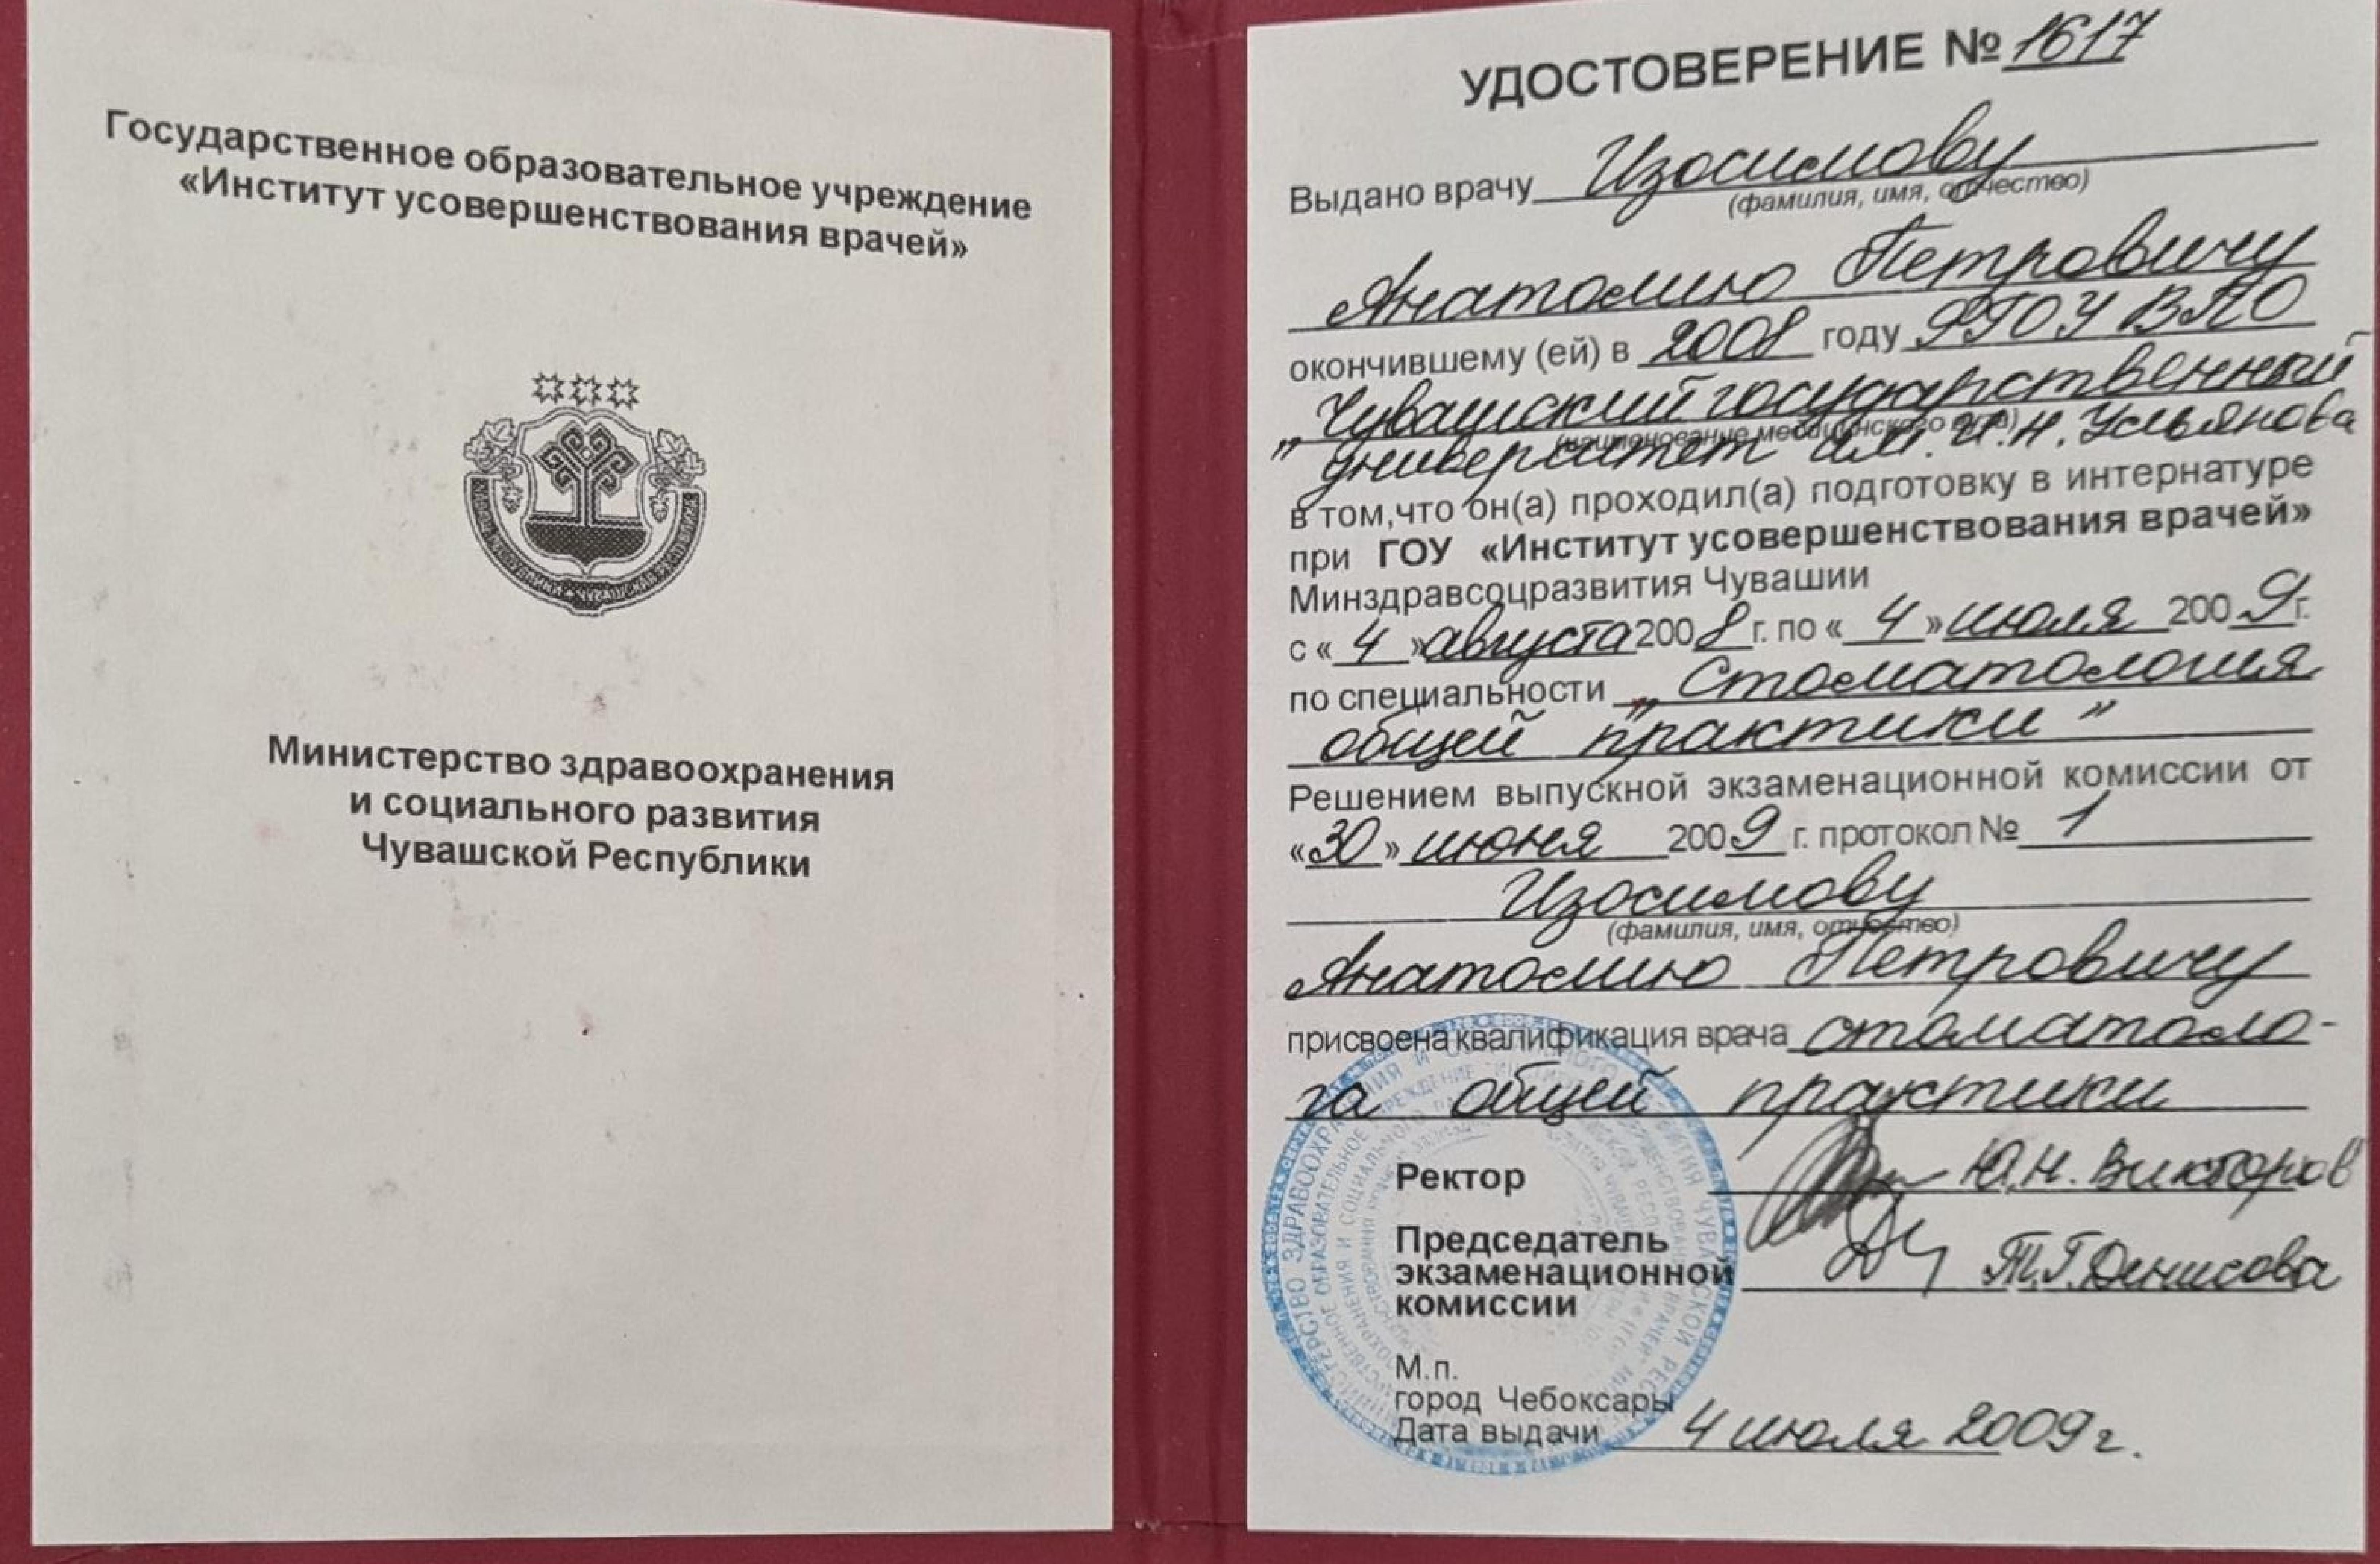 Государственное образовательное учреждение
«Институт усовершенствования врачей»
Министерство здравоохранения
и социального развития
Чувашской Республики
УДОСТОВЕРЕНИЕ № 1617
Выдано врачу Изосимову
(фамилия, имя, отчество)
Анатолию Петровичу
окончившему (ей) в 2008 году ФГОУ ВПО
„Чувашский государственный
(наименование медицинского вуза)
университет им. И.Н. Ульянова”
в том,что он(а) проходил(а) подготовку в интернатуре
при ГОУ «Институт усовершенствования врачей»
Минздравсоцразвития Чувашии
с « 4 » августа 2008 г. по « 4 » июля 2009 г.
по специальности „Стоматология
общей практики”
Решением выпускной экзаменационной комиссии от
«30» июня 2009 г. протокол № 1
Изосимову
(фамилия, имя, отчество)
Анатолию Петровичу
присвоена квалификация врача стоматоло-
га общей практики
Ректор Ю.Н. Викторов
Председатель
экзаменационной Т.Г. Денисова
комиссии
М.п.
город Чебоксары
Дата выдачи 4 июля 2009 г.